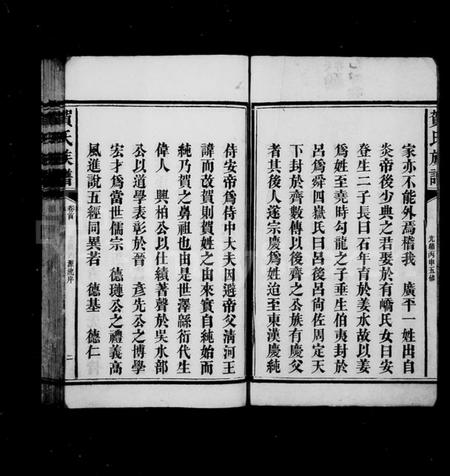 賀氏族譜
光緒丙申五修
家亦不能外焉稽我 廣平一姓出自
炎帝後少典之君娶於有嶠氏女曰安
登生二子長曰石年育於姜水故以姜
爲姓至堯時勾龍之子垂生伯夷封於
呂爲舜四嶽氏曰呂後呂尚佐周定天
下封於齊數傳以後齊之公族有慶父
者其後人遂宗慶爲姓迨至東漢慶純
侍安帝爲侍中大夫因避帝父清河王
諱而改賀則賀姓之由來實自純始而
純乃賀之鼻祖也由是世澤緜衍代生
偉人 興柏公以仕績著聲於吳水部
公以道學表彰於晉 彥先公之博學
宏才爲當世儒宗 德璉公之禮義高
風進說五經同異若 德基 德仁
賀氏族譜
卷首
序
二